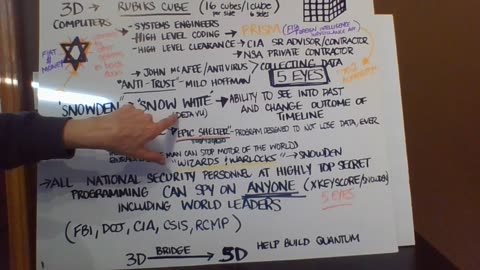 3D → RUBIKS CUBE (16 CUBES/1 CUBE)
COMPUTERS
SYSTEMS ENGINEERS
HIGH LEVEL CODING → PRISM
HIGH LEVEL CLEARANCE → CIA SR ADVISOR/CONTRACTOR
→ NSA PRIVATE CONTRACTOR
FIAT $ MONEY
→ JOHN MCAFEE/ANTIVIRUS > COLLECTING DATA
"ANTI-TRUST" - MILO HOFFMAN
5 EYES
"SNOWDEN" → "SNOW WHITE" → ABILITY TO SEE INTO PAST
(DEJAVU) AND CHANGE OUTCOME OF
TIMELINE
"EPIC SHELTER" - PROGRAM DESIGNED TO NOT LOSE DATA, EVER
MAN CAN STOP MOTOR OF THE WORLD)
"WIZARDS & WARLOCKS" → SNOWDEN
→ ALL NATIONAL SECURITY PERSONNEL AT HIGHLY TOP SECRET
PROGRAMMING CAN SPY ON ANYONE (XKEYSCORE/SNOWDEN)
INCLUDING WORLD LEADERS 5 EYES
(FBI, DOJ, CIA, CSIS, RCMP)
3D BRIDGE → 5D HELP BUILD QUANTUM